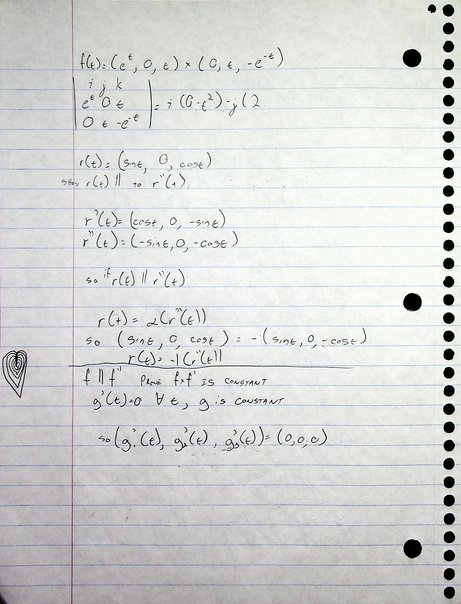 f(t) = (e^t, 0, t) × (0, t, -e^-t)
| i j k |
| e^t 0 t | = i (0-t²) - j (2
| 0 t -e^-t |
r(t) = (sint, 0, cost)
show r(t) || to r"(t)
r'(t) = (cost, 0, -sint)
r"(t) = (-sint, 0, -cost)
so if r(t) || r"(t)
r(t) = 2(r"(t))
so (sint, 0, cost) = -(sint, 0, -cost)
r(t) = -1(r"(t))
f || f" PROVE f×f' IS CONSTANT
g'(t)=0 ∀ t, g is CONSTANT
so (g₁'(t), g₂'(t), g₃'(t)) = (0,0,0)